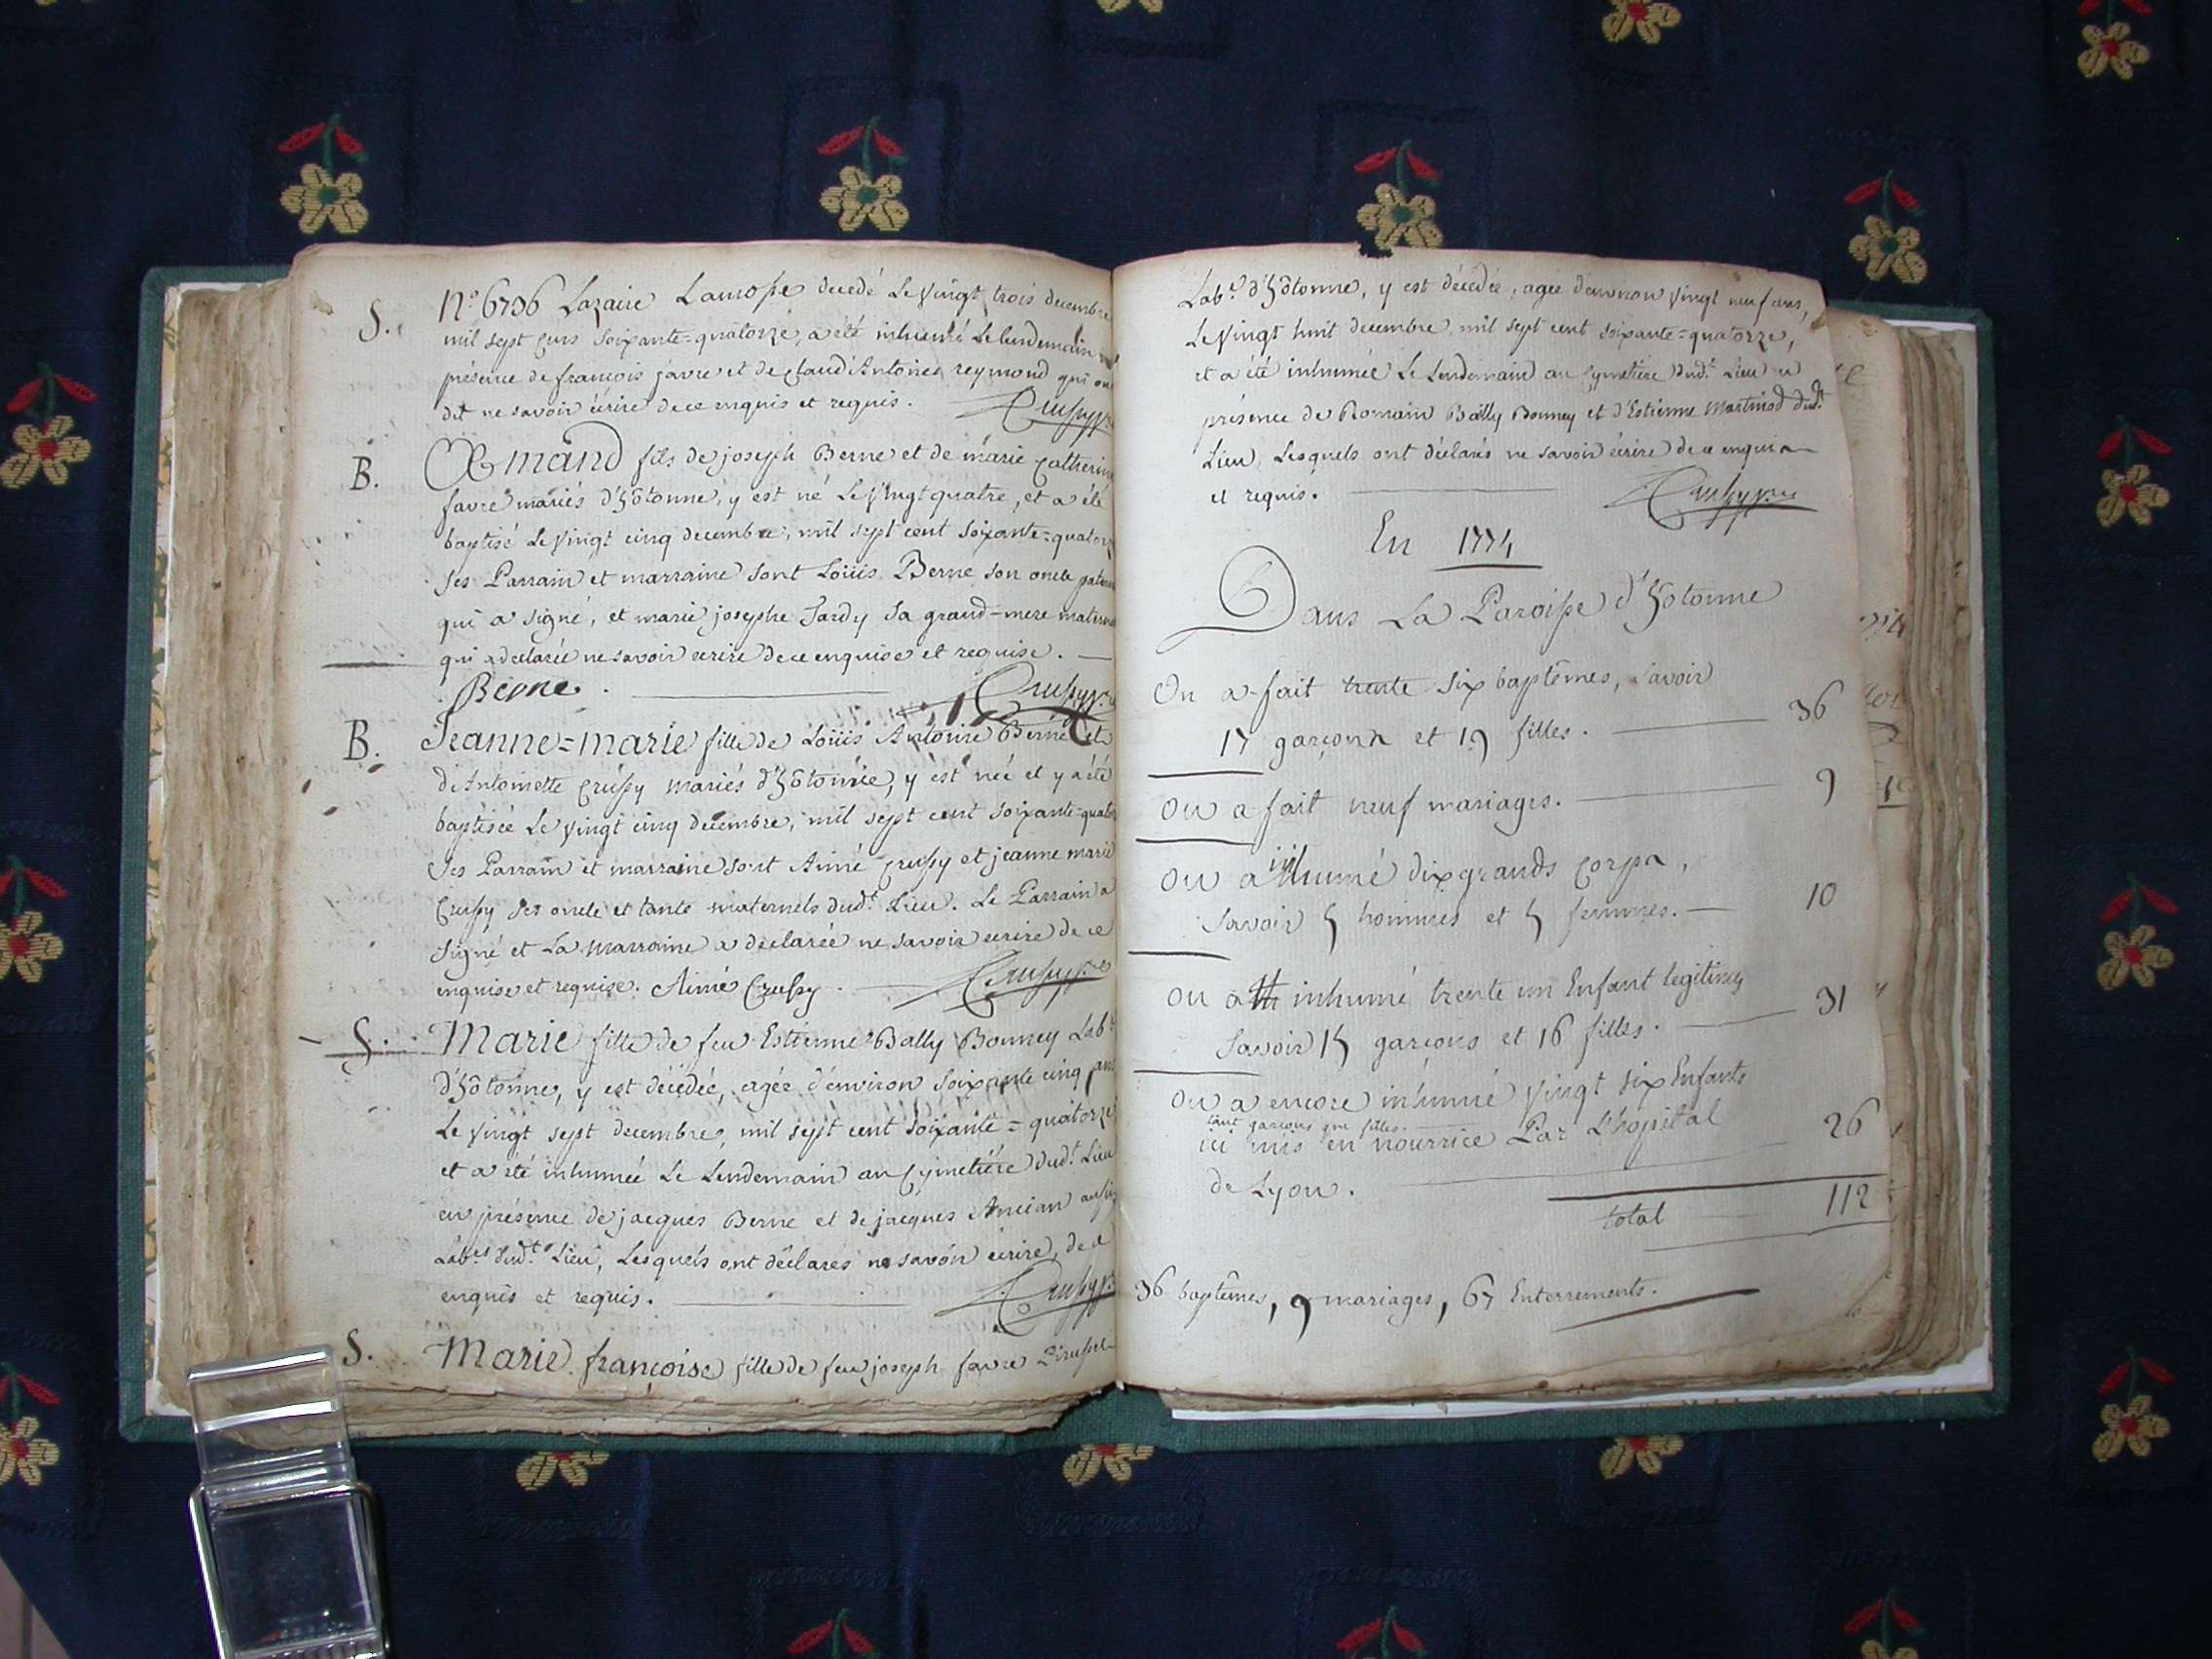 S. N.º 6736 Lazaire decedé Le vingt trois decembre
mil sept cens soixante=quatorze, a été inhumé Le lendemain
présence de françois favre et de claud'Antoine reymond qui on
dit ne savoir écrire de ce enquis et requis.
B. fils de joseph Berne et de marie Catherine
favre mariés d'hôtonne, y est né Le vingt quatre, et a été
baptisé Le vingt cinq decembre, mil sept cent soixante=quatorz
ses Parrain et marraine sont Loüis Berne son oncle patern
qui a signé, et marie josephe Tardy sa grand-mere matern
qui a declarée ne savoir écrire de ce enquise et requise.
Berne.
B. Jeanne=marie fille de Loüis Antoine Berne et
d'Antoinette Crussy mariés d'hôtonne, y est née et y a été
baptisée Le vingt cinq decembre, mil sept cent soixante-quator
Ses Parrain et marraine sont Aimé Crussy et jeanne marie
Crussy ses oncle et tante maternels dud.t Lieu. Le Parrain a
signé et La marraine a declarée ne savoir écrire de ce
enquise et requise. Aimé Crussy.
S. Marie fille de feu Estienne Bally Bonney Lab.r
d'hôtonne, y est décédée, agée d'environ soixante cinq ans
Le vingt sept decembre, mil sept cent soixante=quatorze
et a été inhumée Le Lendemain au Cymetière dud.t Lieu
en présence de jacques Berne et de jacques Ancian aussi
Lab.rs dud.t Lieu, Lesquels ont déclarés ne savoir écrire, de ce
enquis et requis.
S. Marie françoise fille de feu joseph favre
Lab.r d'hôtonne, y est décédée, agée d'environ vingt neuf ans,
Le vingt huit decembre mil sept cent soixante=quatorze,
et a été inhumée Le Lendemain au Cymetière dud.t Lieu en
présence de Romain Bally Bonney et d'Estienne Martinod dud.t
Lieu, Lesquels ont déclarés ne savoir écrire de ce enquis
et requis.
En 1774
Dans La Paroisse d'hotonne
On a fait trente six baptêmes, savoir
17 garçons et 19 filles. 36
on a fait neuf mariages. 9
on a inhumé dix grands Corps,
savoir 5 hommes et 5 femmes. 10
on a inhumé trente un Enfant legitimes
savoir 15 garçons et 16 filles. 31
on a encore inhumé vingt six Enfants
tant garçons que filles.
ici mis en nourrice Par L'hopital 26
de Lyon.
total 112
36 baptêmes, 9 mariages, 67 Enterrements.